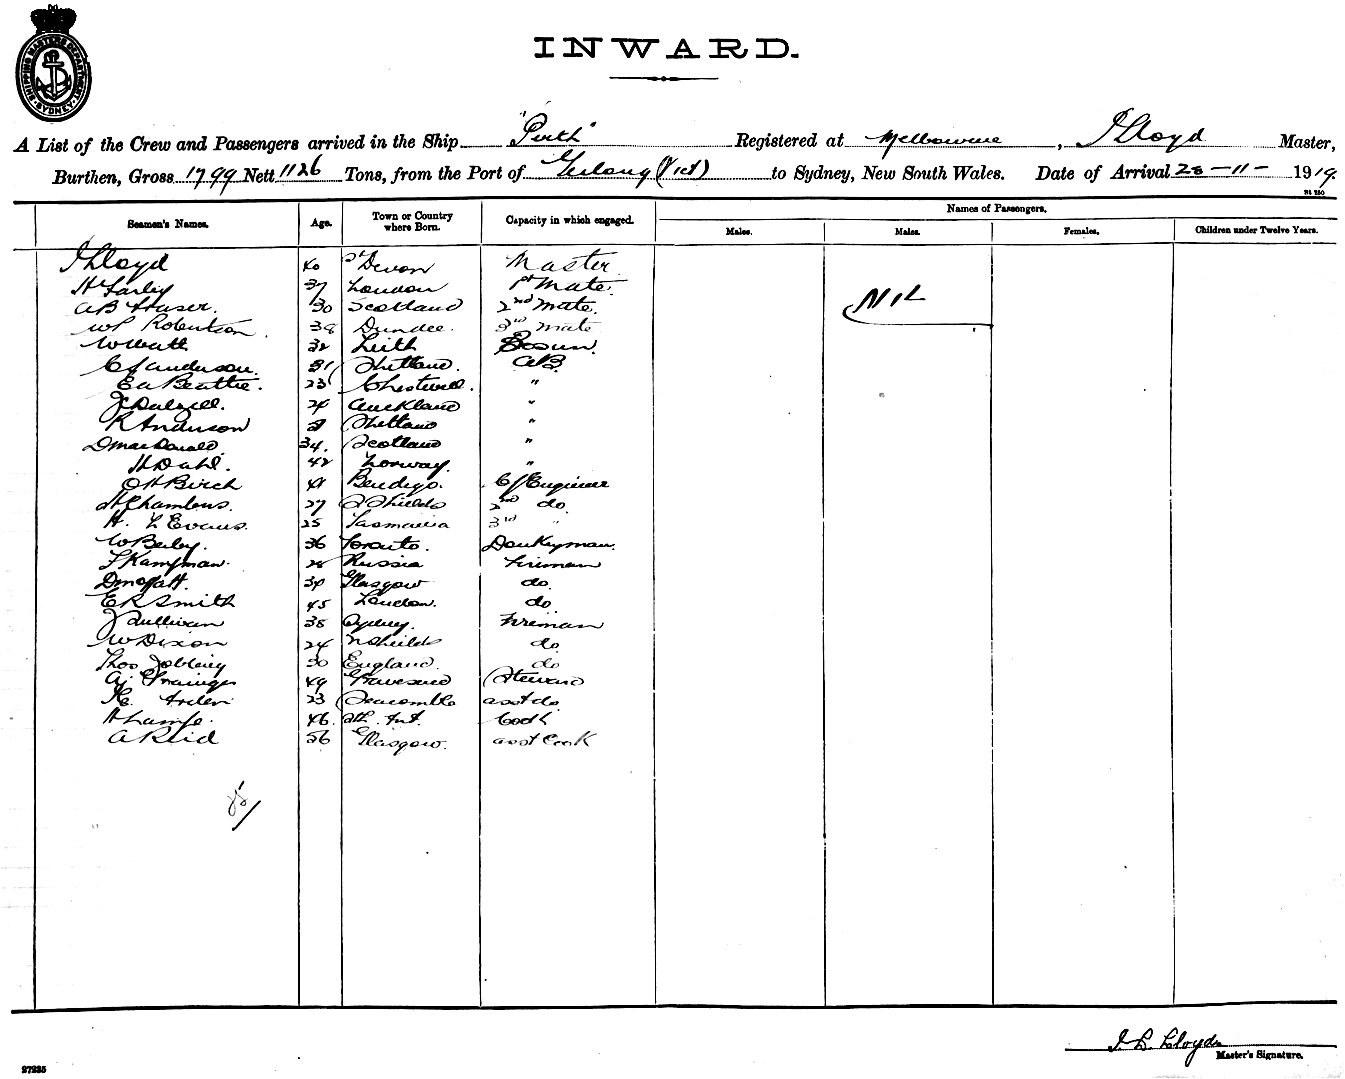 SHIPPING MASTERS DEPARTMENT SYDNEY
INWARD.
A List of the Crew and Passengers arrived in the Ship "Perth" Registered at Melbourne, J Lloyd Master,
Burthen, Gross 1799 Nett 1126 Tons, from the Port of Geelong (Vict) to Sydney, New South Wales. Date of Arrival 28-11-1919.
Seamen's Names. Age. Town or Country where Born. Capacity in which engaged. Names of Passengers.
Males. Males. Females. Children under Twelve Years.
J Lloyd 40 Devon Master
H Farley 37 London 1st Mate
NIL
AB Fraser. 30 Scotland 2nd Mate.
WP Robertson 39 Dundee. 3rd mate
W Watt 32 Leith Bosun.
C J Anderson. 31 Shetland. AB.
E A Beattie. 23 "
J Dalzell. 24 Auckland "
R Anderson Shetland "
D MacDonald 34. Scotland "
H Dahl. 42 Norway. "
O H Birch 41 Bendigo. C/Engineer
H Chambers. 27 S Shields 2nd do.
H. L Evans. 25 Tasmania 3rd "
W Bailey. 36 Toronto. Donkeyman.
F Kampman. 28 Russia Fireman
D Moffatt. 34 Glasgow do.
E R Smith 45 London. do.
J Sullivan 38 Sydney. Fireman
W Dixon 24 N Shields do
Thos 30 England. do
A J Grainger 49 Gravesend Steward
23 Seacombe asst do.
H Lampe. 46. Cook
A Reid 56 Glasgow. asst Cook
J. L. Lloyd
Master's Signature.
27235